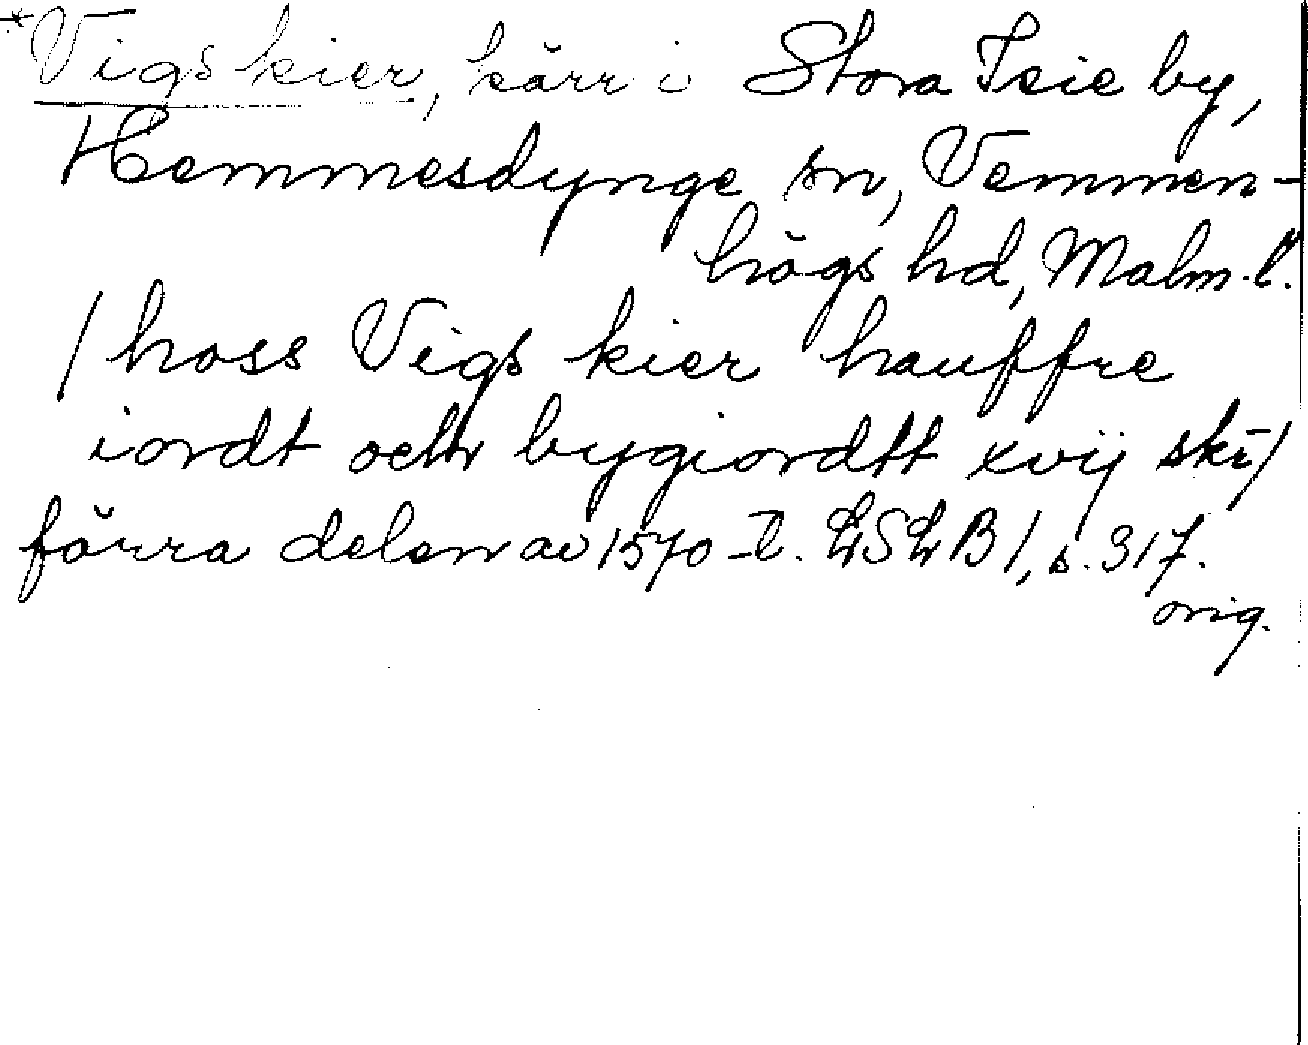 *Vigs kier, kärr i Stora Isie by,
Hemmesdynge sn, Vemmen-
högs hd, Malm. l.
/ hoss Vigs kier hauffre
iordt och bygiordtt xvij skī/
förra delen av 1570-t. LSLB 1, s. 317.
orig.